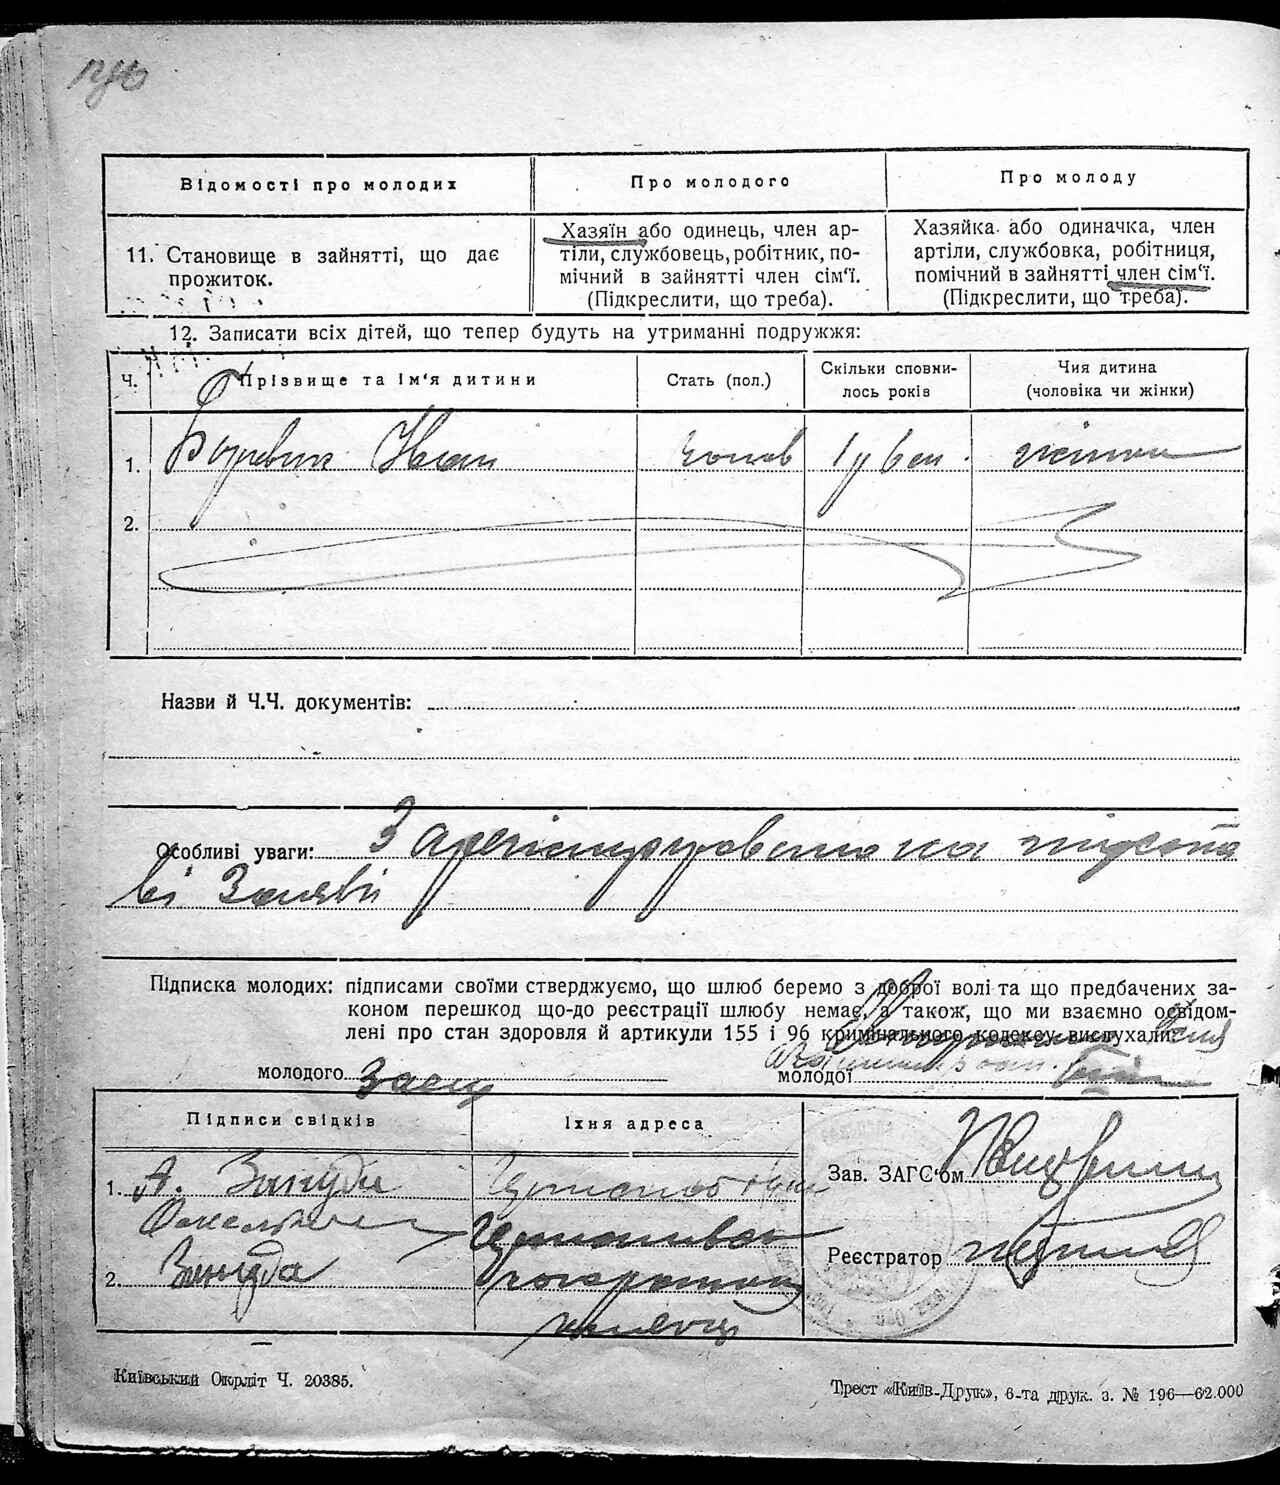 Відомості про молодих
Про молодого
Про молоду
11. Становище в зайнятті, що дає
прожиток.
Хазяїн або одинець, член ар-
тіли, службовець, робітник, по-
мічний в зайнятті член сім'ї.
(Підкреслити, що треба).
Хазяйка або одиначка, член
артіли, службовка, робітниця,
помічний в зайнятті член сім'ї.
(Підкреслити, що треба).
12. Записати всіх дітей, що тепер будуть на утриманні подружжя:
Ч.
Прізвище та ім'я дитини
Стать (пол.)
Скільки сповни-
лось років
Чия дитина
(чоловіка чи жінки)
1. Іван чолов
2.
Назви й Ч.Ч. документів:
Особливі уваги: Зареєстровано на підста
ві Заяви
Підписка молодих: підписами своїми стверджуємо, що шлюб беремо з доброї волі та що предбачених за-
коном перешкод що-до реєстрації шлюбу немає, а також, що ми взаємно освідом-
лені про стан здоров'я й артикули 155 і 96 кримінального кодексу вислухали:
молодого Заєць
молодої
Підписи свідків
Їхня адреса
1. А.
2.
Зав. ЗАГС'ом
Реєстратор
Київський Окрліт Ч. 20385.
Трест «Київ-Друк», 6-та друк. з. № 196—62.000